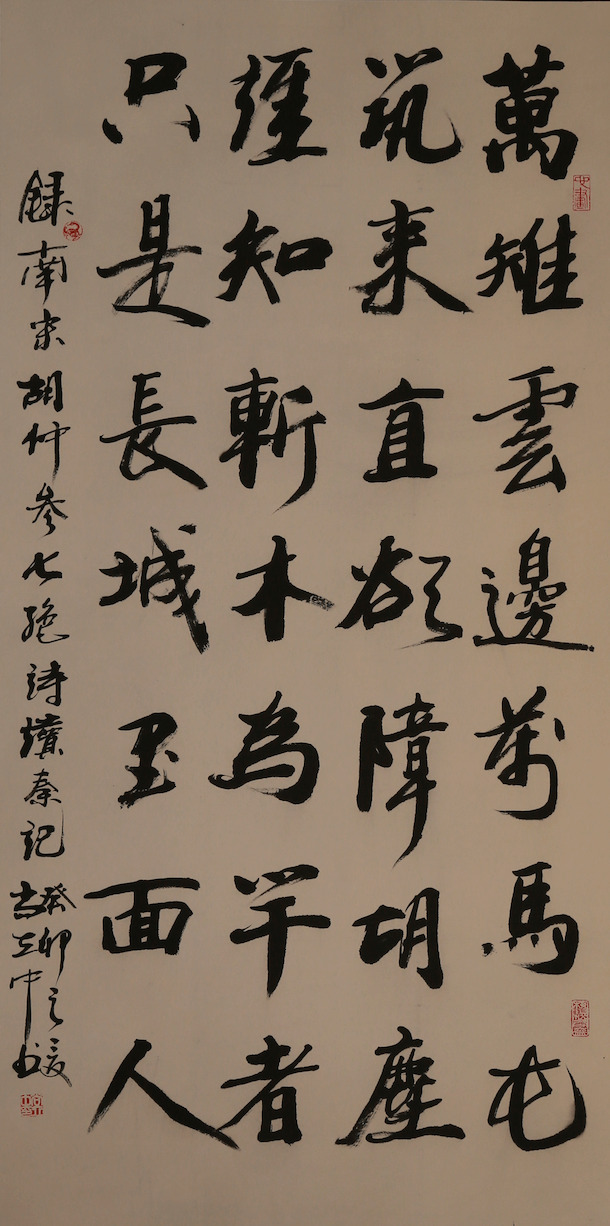 萬雉雲邊萬馬屯
筑来直欲障胡塵
誰知斬木為竿者
只是長城里面人
錄南宋胡仲参七绝詩讀秦記
癸卯之夏
中书